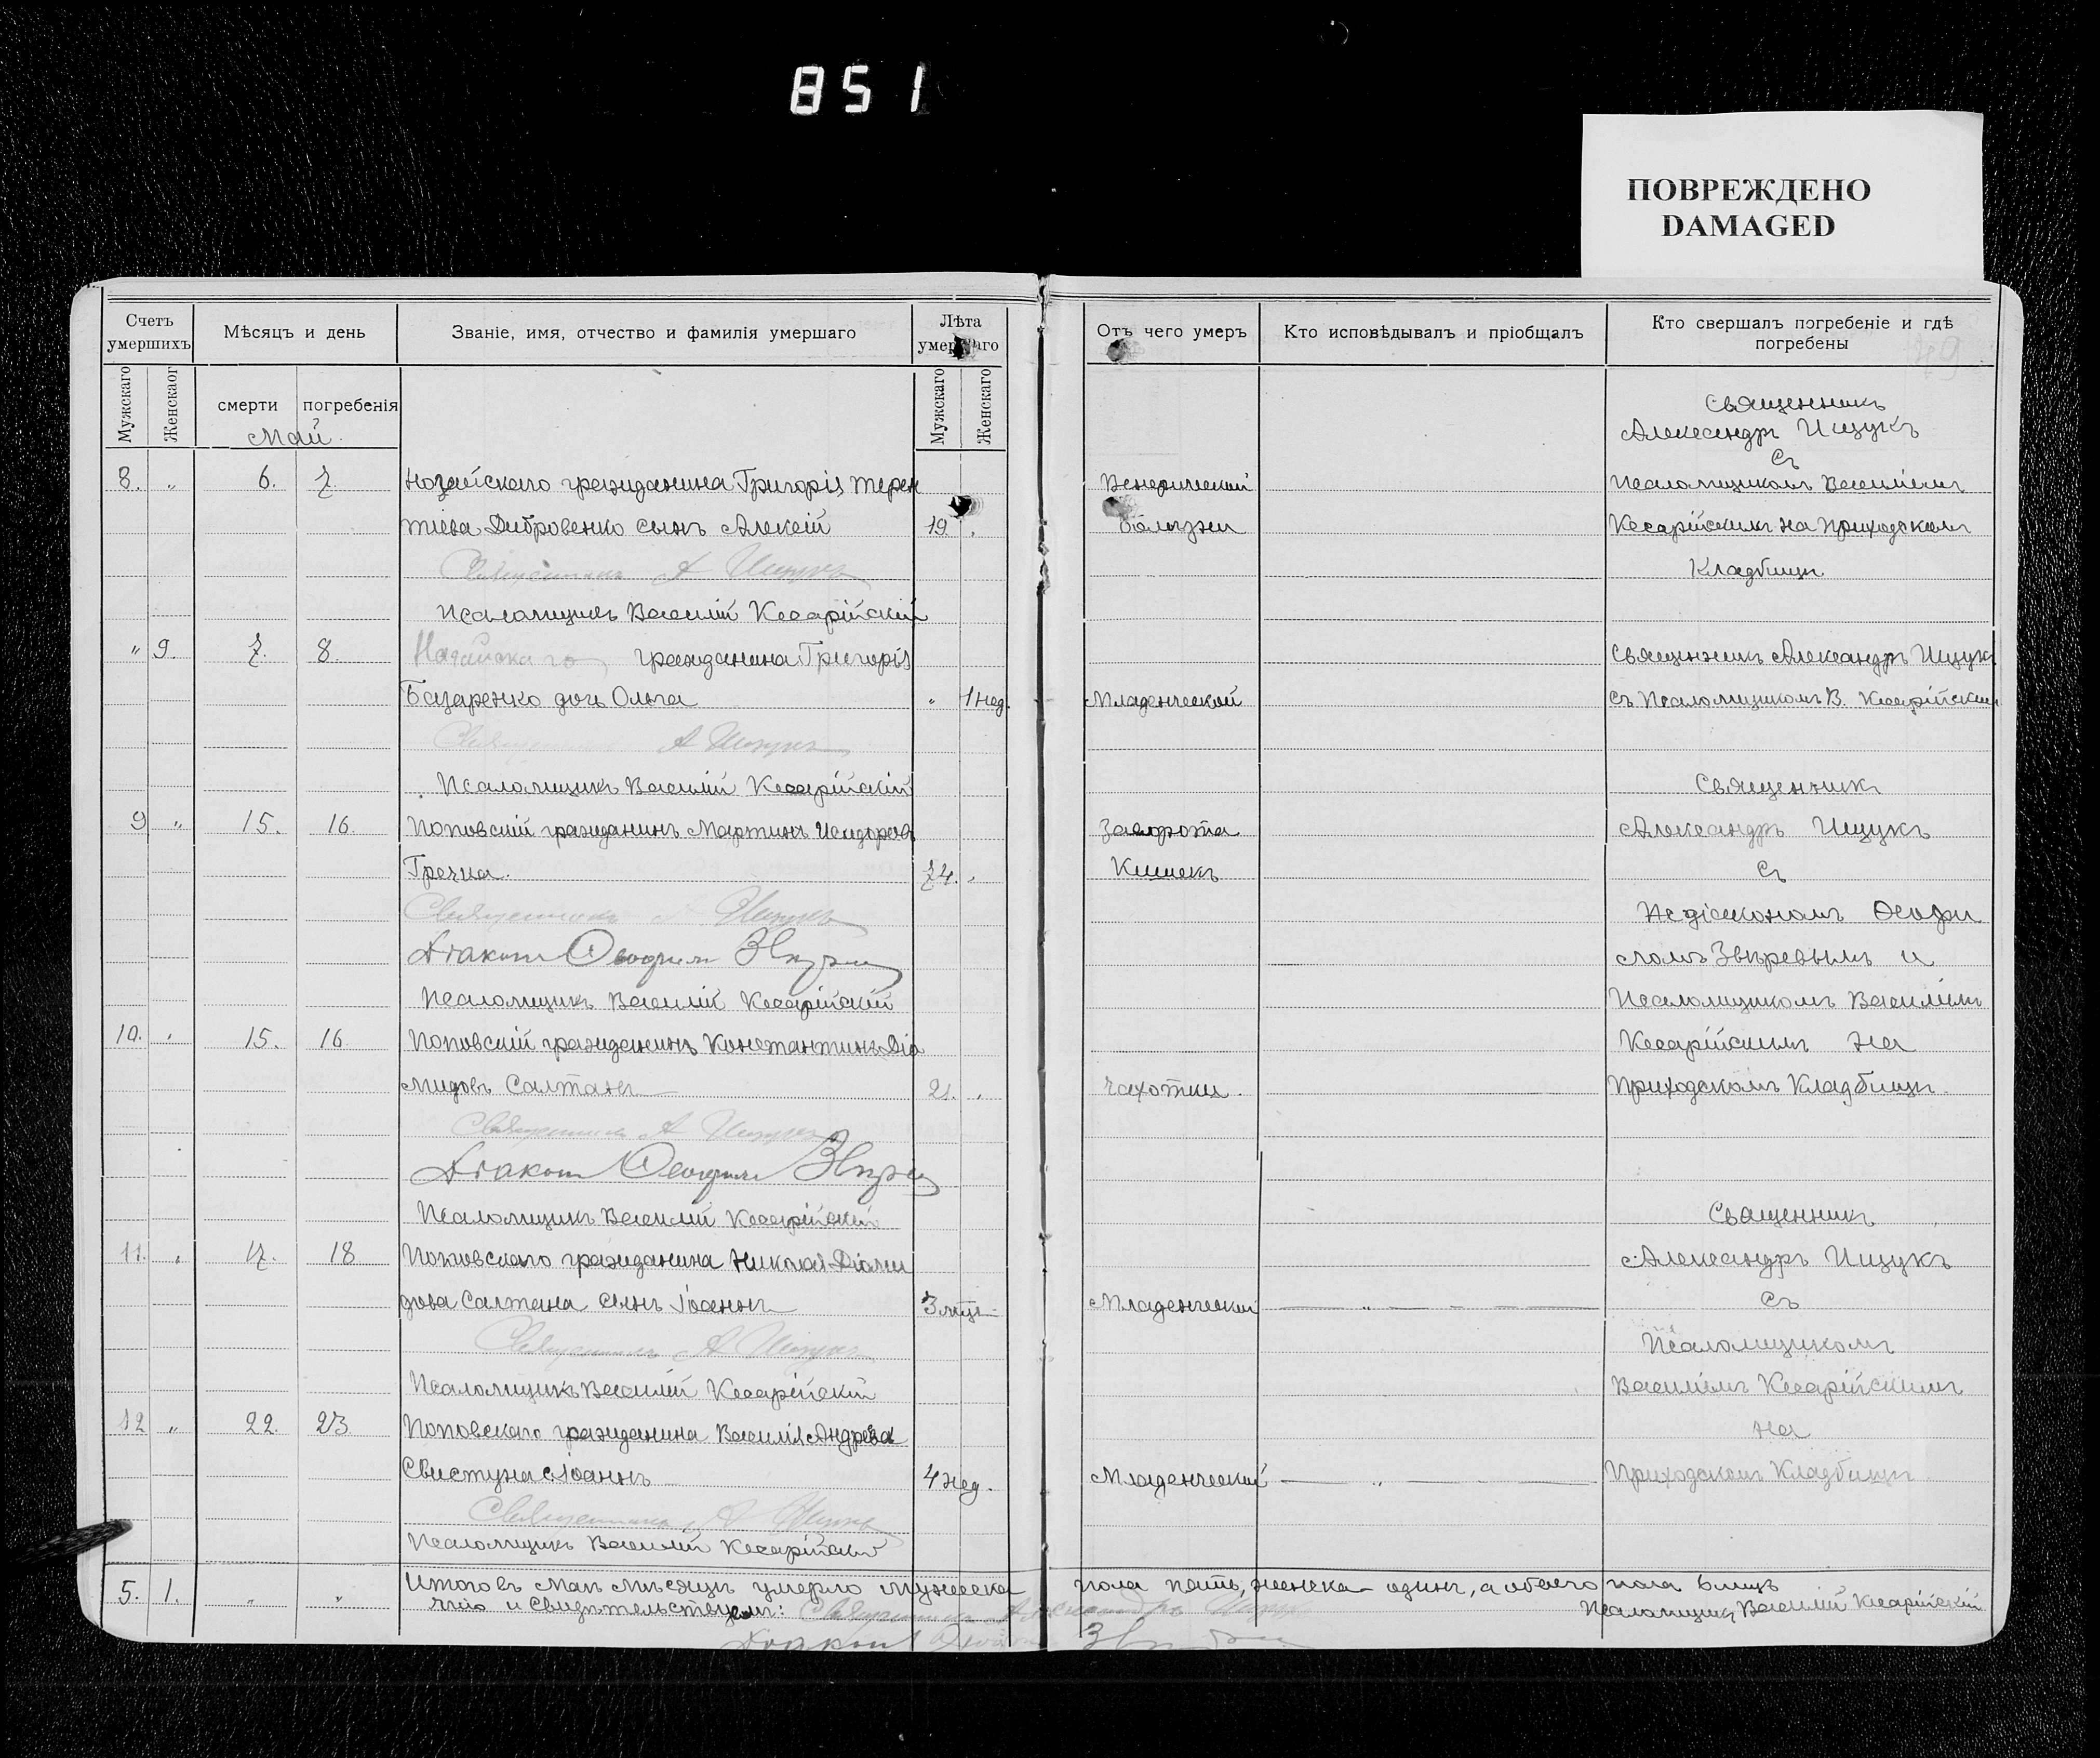 851
ПОВРЕЖДЕНО
DAMAGED
Счетъ умершихъ
Мѣсяцъ и день
Званіе, имя, отчество и фамилія умершаго
Лѣта умершаго
Отъ чего умеръ
Кто исповѣдывалъ и пріобщалъ
Кто свершалъ погребеніе и гдѣ погребены
Мужскаго
Женскаог
смерти
погребенія
Мужскаго
Женскаго
Май
Священникъ
Александръ Ищукъ
съ
8. " 6. 7. Ногайскаго гражданина Григорія Терен Венерической Псаломщикомъ Василіемъ
тіева Дибровенко сынъ Алексій 19. болѣзни Кесарійскимъ на приходскомъ
Священникъ А Ищукъ Кладбищѣ
Псаломщикъ Василій Кесарійскій
" 9. 7. 8. Ногайскаго гражданина Григорія Священникъ Александръ Ищукъ
Базаренко дочь Ольга " 1 нед. Младенческой съ Псаломщикомъ В. Кесарійскимъ
Священникъ А Ищукъ
Псаломщикъ Василій Кесарійскій Священникъ
9 " 15. 16. Поповскій гражданинъ Мартинъ Исидоровъ Заворота Александръ Ищукъ
Гречка. 74. " Кишекъ съ
Священникъ А Ищукъ діакономъ Ѳеофи
Діаконъ Ѳеофилъ Звѣревъ ломъ Звѣревымъ и
Псаломщикъ Василій Кесарійскій Псаломщикомъ Василіемъ
10. " 15. 16 Поповскій гражданинъ Константинъ Діо Кесарійскимъ на
мидовъ Салтанъ 21. " Чахотки. Приходскомъ Кладбищѣ.
Священникъ А Ищукъ
Діаконъ Ѳеофилъ Звѣревъ
Псаломщикъ Василій Кесарійскій Священникъ
11. " 17. 18 Поповскаго гражданина Николая Діоми Александръ Ищукъ
дова Салтана сынъ Іоаннъ 3 мѣс. Младенческой " съ
Священникъ А Ищукъ Псаломщикомъ
Псаломщикъ Василій Кесарійскій Василіемъ Кесарійскимъ
12 " 22. 23. Поповскаго гражданина Василія Андреева на
Свистуна с. Іоаннъ 4 нед. Младенческой " Приходскомъ Кладбищѣ
Священникъ А Ищукъ
Псаломщикъ Василій Кесарійскій
5. 1. " " Итого въ Маѣ мѣсяцѣ умерло мужеска пола пять, женска одинъ, а обоего пола 6 лицъ
что и свидѣтельствуемъ: Священникъ Александръ Ищукъ Псаломщикъ Василій Кесарійскій
Діаконъ Ѳеофилъ Звѣревъ